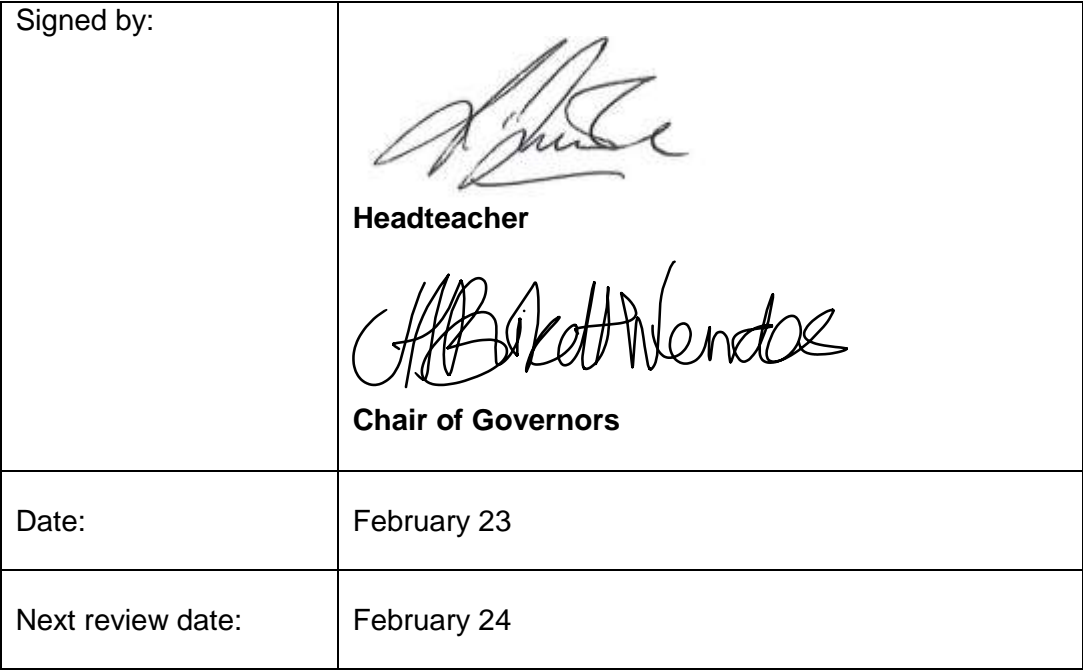 Signed by:
Headteacher
Chair of Governors
Date:
February 23
Next review date:
February 24